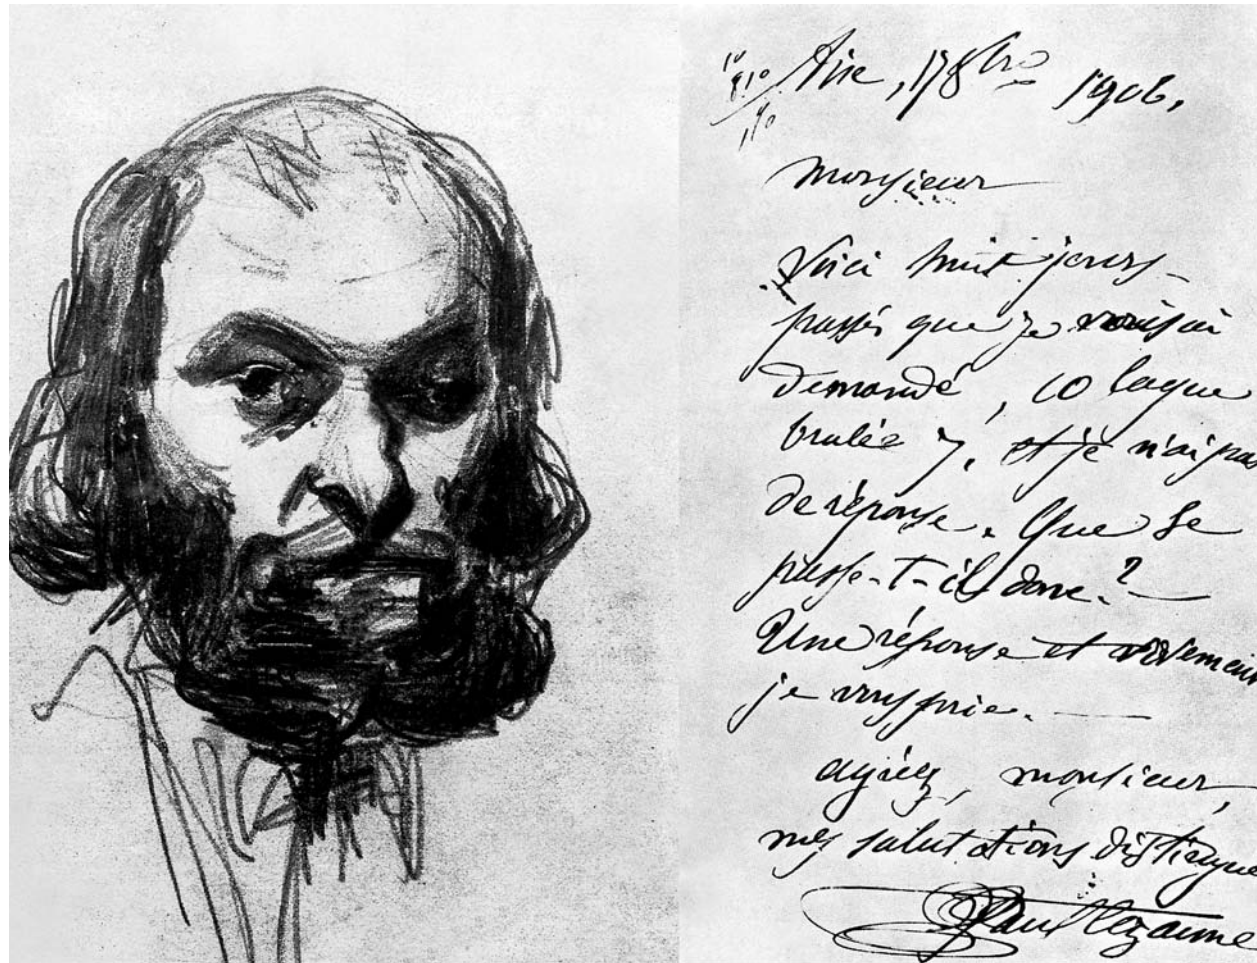 Aix, 17 8bre 1906.
Monsieur
Voici huit jours
passés que je vous ai
demandé, 10 laque
brulée 7, et je n'ai pas
de réponse. Que se
passe-t-il donc?
Une réponse et vivement
je vous prie.
agréez, monsieur,
mes salutations distingue
Paul Cezanne